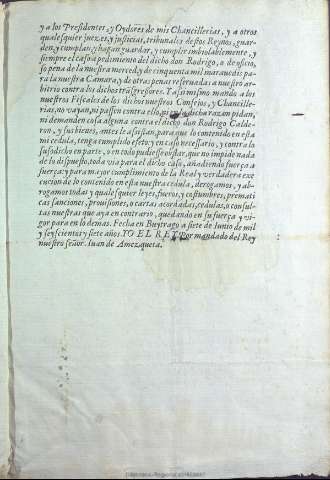 y a los Presidentes, y Oydores de mis Chancillerias, y a otros
qualesquier juezes, y justicias, tribunales destos Reynos, guar-
den, y cumplan, y hagan guardar, y cumplir imbiolablemente, y
siempre el caso a pedimiento del dicho don Rodrigo, o de oficio,
so pena de la nuestra merced, y de cinquenta mil marauedis pa-
ra la nuestra Camara, y de otras penas reseruadas a nuestro ar-
bitrio contra los dichos trasgresores. Y assi mismo mando a los
nuestros Fiscales de los dichos nuestros Consejos, y Chancille-
rias, no vayan, ni passen contra ello, ni por la dicha razam pidan,
ni demanden cosa alguna contra el dicho don Rodrigo Calde-
ron, y sus bienes, antes le assistan, para que lo contenido en esta
mi cedula, tenga cumplido efeto y en caso necessario, y contra lo
susodicho en parte, o en todo pudiesse obstar, que no impide nada
de lo dispuesto, toda via para el dicho caso, añadiendo fuerça a
fuerça: y para mayor cumplimiento de la Real y verdadera exe
cucion de lo contenido en esta nuestra cedula, derogamos, y ab-
rogamos todas y qualesquier leyes, fueros, y costumbres, premati
cas sanciones, prouisiones, o cartas acordadas, cedulas, o consul-
tas nuestras que aya en contrario, quedando en su fuerça y vi-
gor para en lo demas. Fecha en Buytrago a siete de Iunio de mil
y seyscientos y siete años. YO EL REY. Por mandado del Rey
nuestro señor. Iuan de Amezqueta.